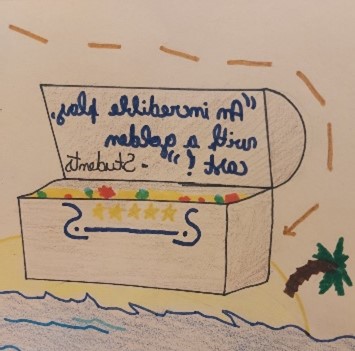 "An incredible play,
with a golden
cast !" - Students